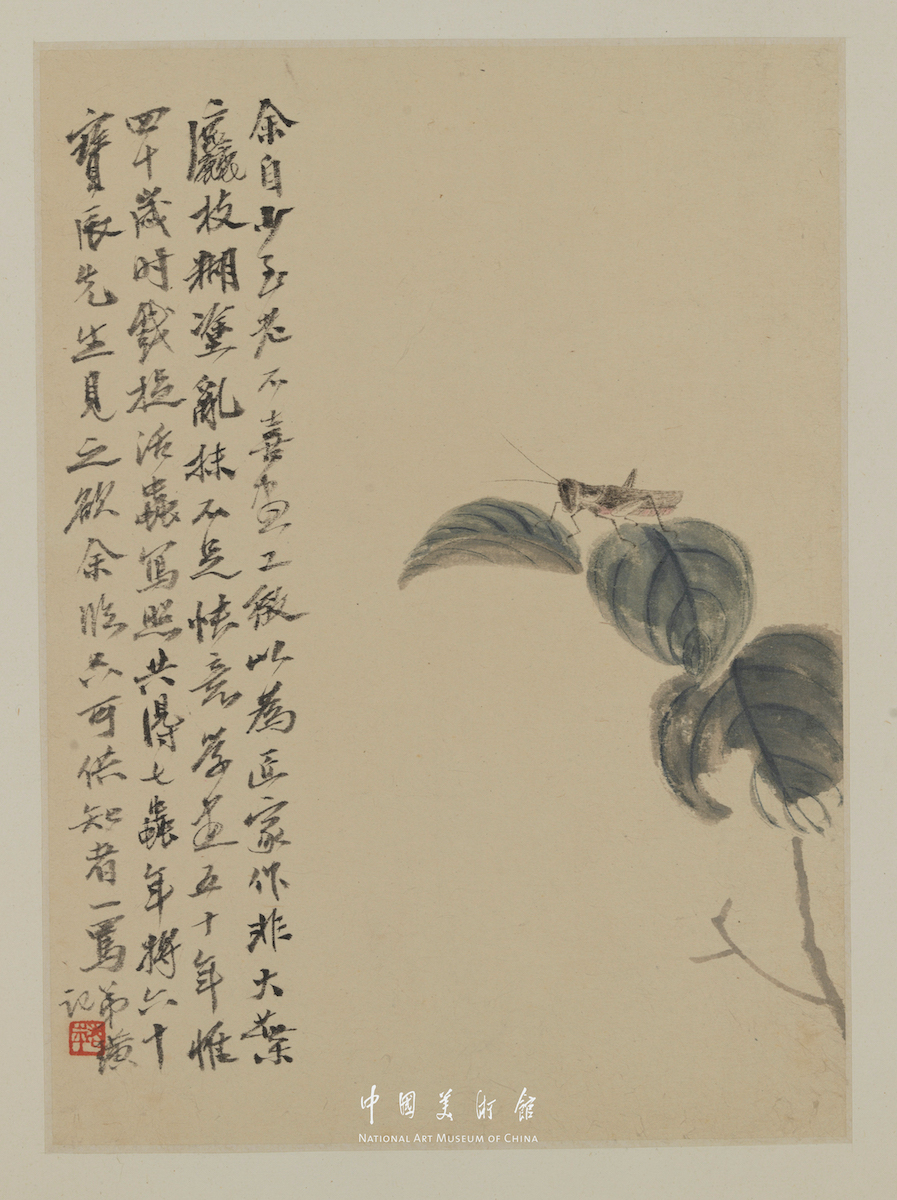 余自少至老不喜画工致以為匠家作非大葉
麤枝糊塗亂抹不足快意学画五十年惟
四十歲时戲捉活蟲寫照共得七蟲年將六十
寶辰先生見之欲余臨只可供知者一罵弟璜
記
中國美術館
NATIONAL ART MUSEUM OF CHINA